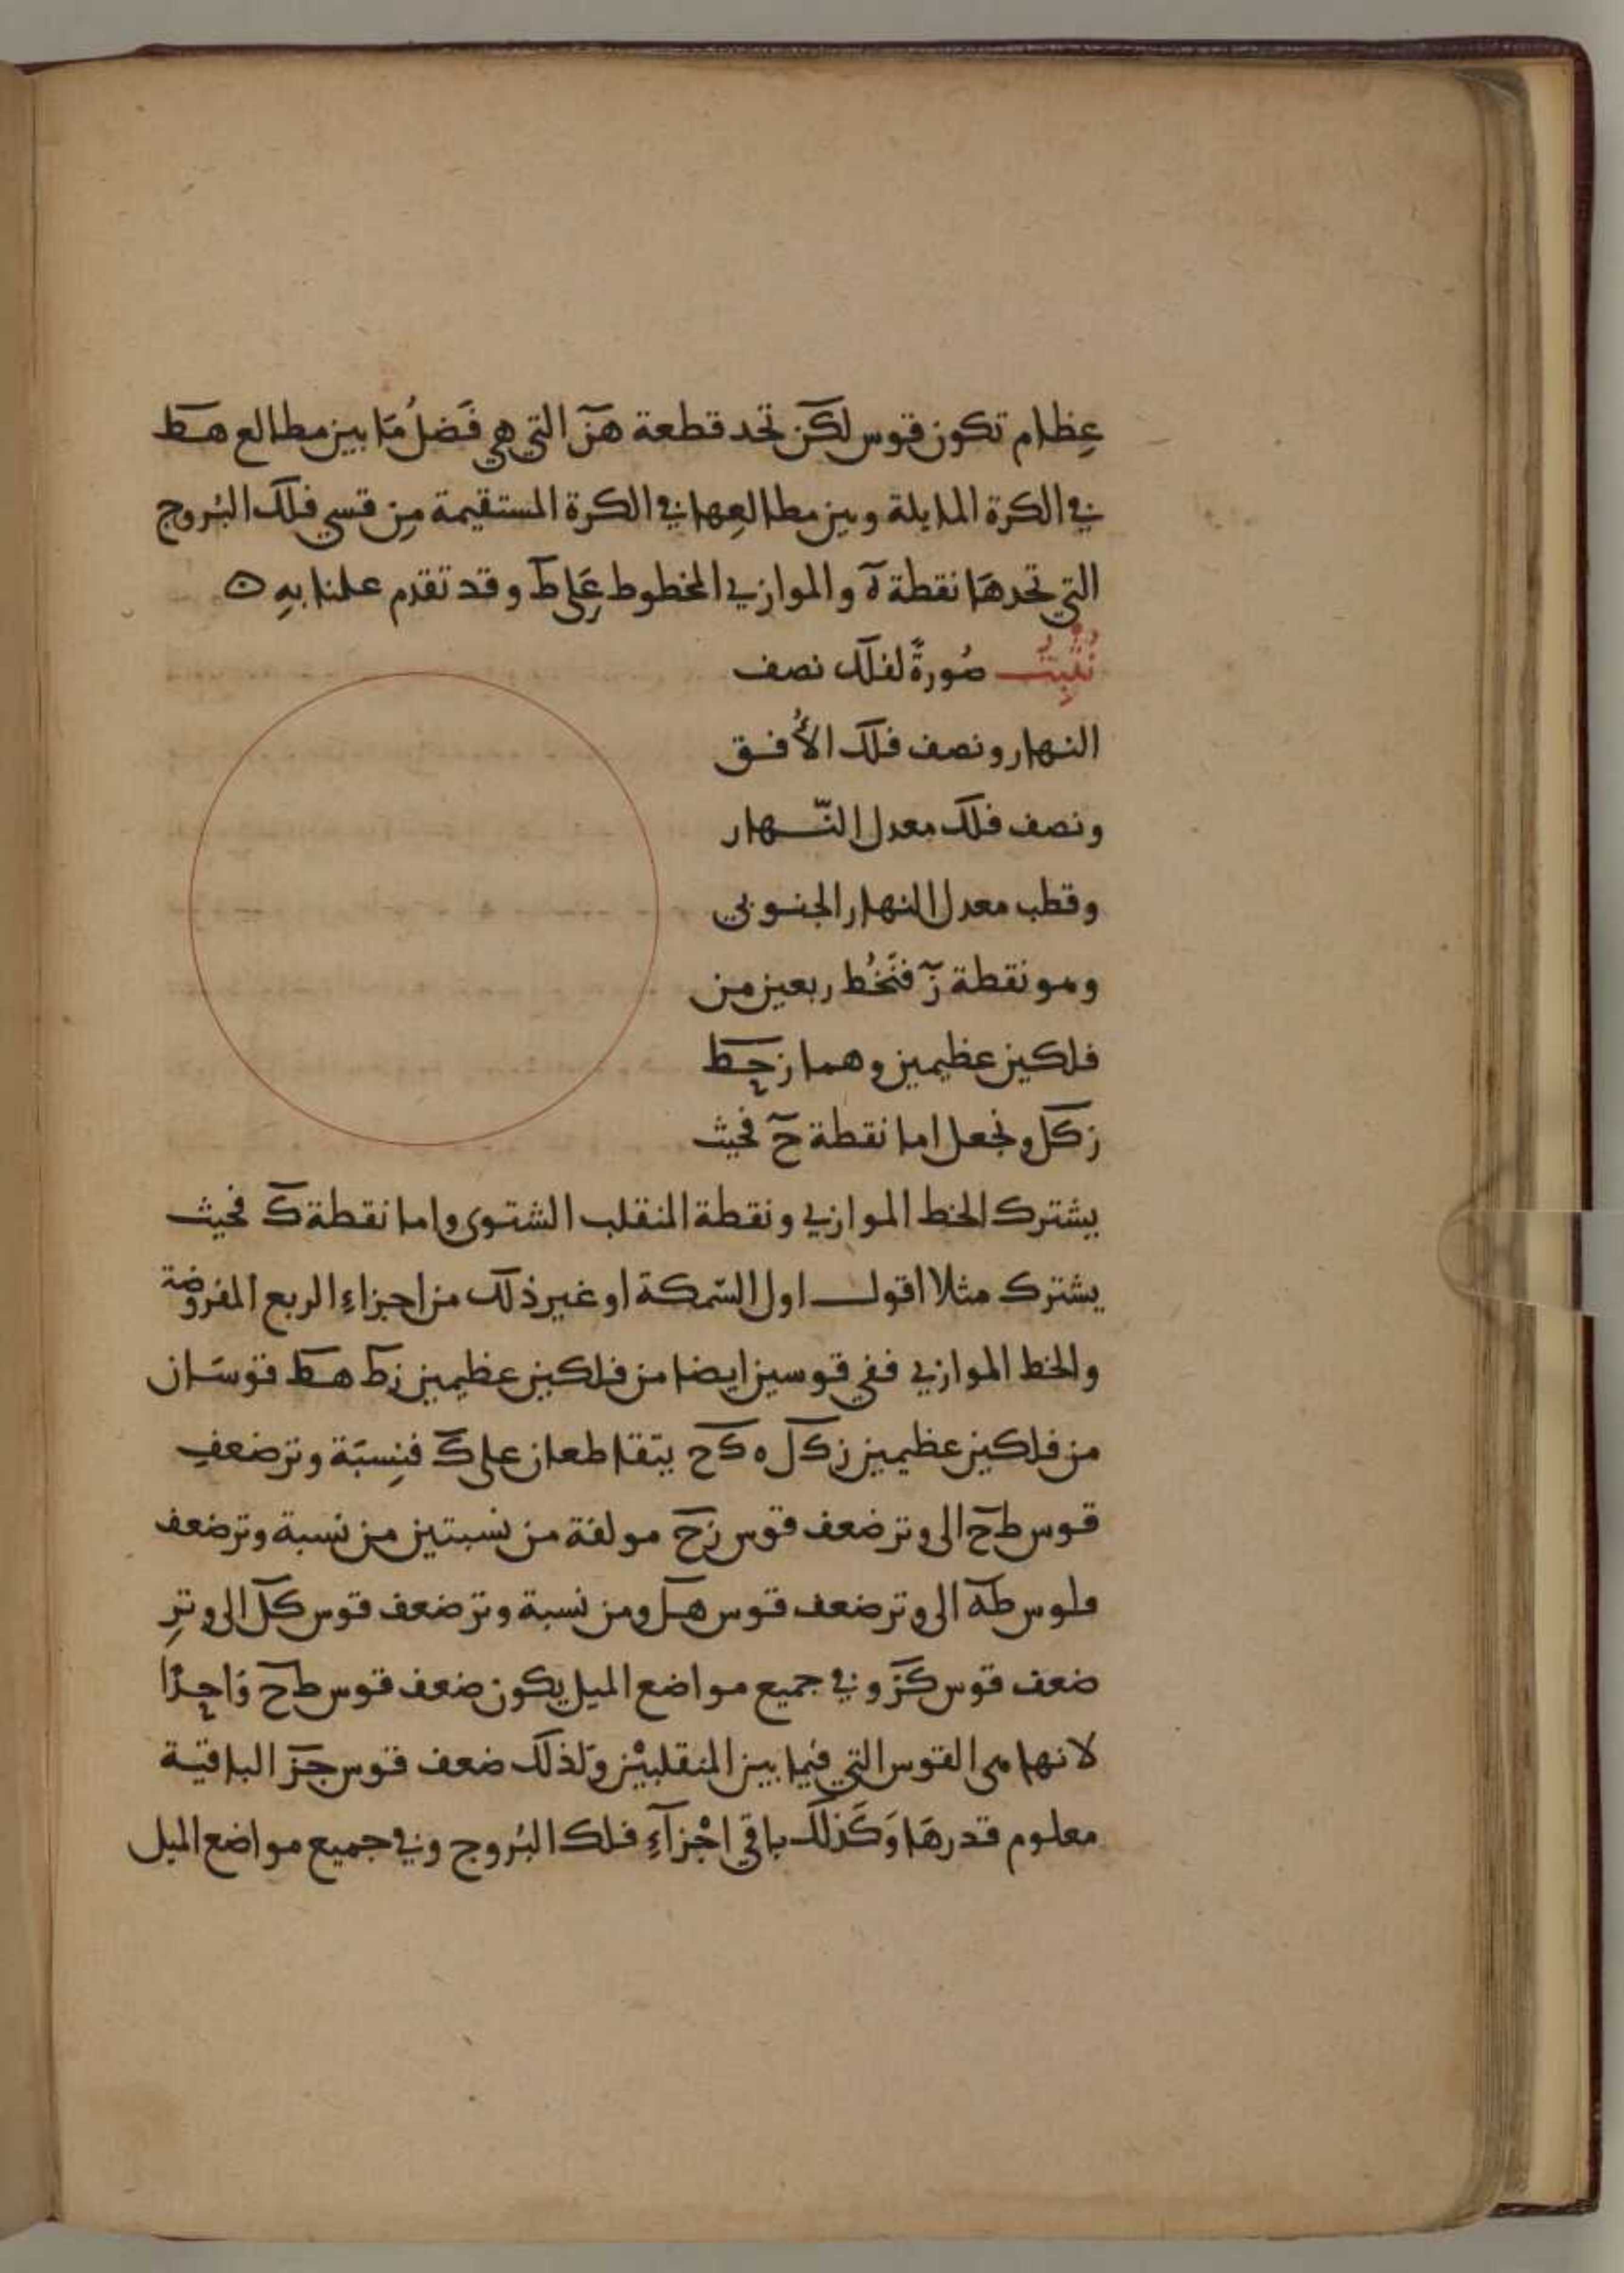 عِظام تكون قوس لكن تحد قطعة هن التي هي فَضلُ مَا بين مطالع هط
في الكرة المايلة وبين مطالعها في الكرة المستقيمة مِن قسي فلك البُروج
التي تحدهَا نقطة ه والموازي المخطوط عَلى ط وقد تقدم علمنا بهِ ه
نُثْبِتُ صُورةً لفلك نصف
النهار ونصف فلك الأُفق
ونصف فلك معدل النّهار
وقطب معدل النهار الجنوبي
وهو نقطة ز فنَخُط ربعين من
فلكين عظيمين وهما زحط
زكل ونجعل اما نقطة ح فحيث
يشترك الخط الموازي ونقطة المنقلب الشتوى واما نقطة ك فحيث
يشترك مثلا اقول اول السّمكة او غير ذلك من اجزاءِ الربع المفروضة
والخط الموازي ففي قوسين ايضا من فلكين عظيمين زط هط قوسَان
من فلكين عظيمين زكل ه كح يتقاطعان على ك فنِسبَة وتر ضعفِ
قوس طح الى وتر ضعف قوس زح مولفة من نسبتين من نسبة وتر ضعف
قوس طه الى وتر ضعف قوس هل ومن نسبة وتر ضعف قوس كل الى وترِ
ضعف قوس كز وفي جميع مواضع الميل يكون ضعف قوس طح وَاحِدًا
لانها هى القوس التي فيما بين المنقلبيْن ولذلك ضعف قوس حز الباقية
معلوم قدرهَا وَكَذلك باقي اجْزآءِ فلك البُروج وفي جميع مواضع الميل